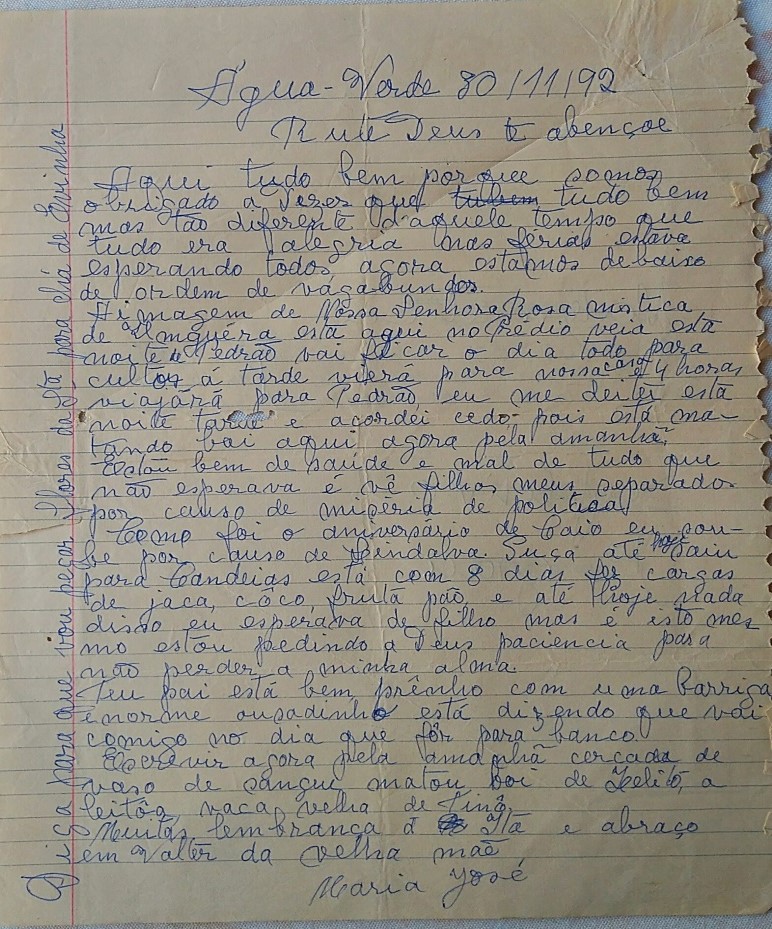 Água-Verde 30/11/92
Rute Deus te abençoe
Aqui tudo bem porque somos
obrigado a dizer que tudo bem
mas tão diferente daquele tempo que
tudo era alegria nas férias estava
esperando todos, agora estamos debaixo
de ordem de vagabundos.
A imagem de Nossa Senhora Rosa mistica
de está aqui no Prédio veia esta
noite e Pedrão vai ficar o dia todo para
cultos á tarde virá para nossa casa at 4 horas
viajará para Pedrão, eu me deitei está
noite tarde e acordei cedo pois está ma-
tando boi aqui agora pela amanhã.
Estou bem de saúde e mal de tudo que
não esperava é vê filhos meus separado
por causo de miseria de politica
Como foi o aniversário de Caio eu sou-
be por causo de Lindalva. Suça até hoje saiu
para Candeias está com 8 dias fez cargas
de jaca, côco, fruta pão, e até hoje nada
disso eu esperava de filho mas é isto mes
mo estou pedindo a Deus paciencia para
não perder a minha alma.
Teu pai está bem prênho com uma barriga
enorme ousadinho está dizendo que vai
comigo no dia que fôr para banco.
Escrevir agora pela amanhã cercada de
vaso de sangue matou boi de Zelito, a
leitôa, vaca velha de
Muitas lembrança á Itá e abraço
em Valter da velha mãe
Maria José
Diga para que vou pegar flores da Itá para chá de